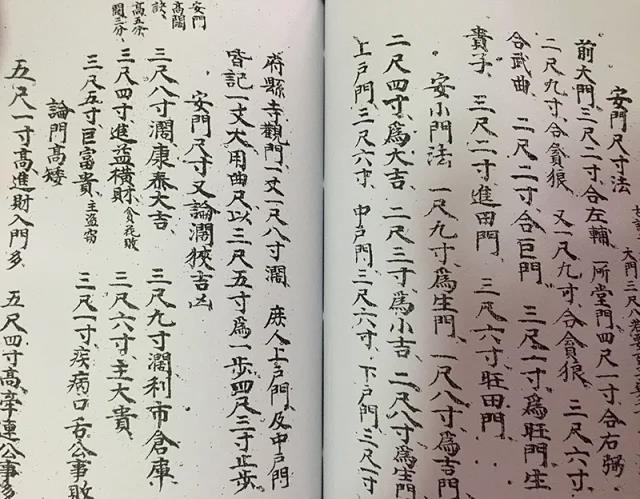 大門三尺八
安門尺寸法
前大門、三尺二寸、合左輔、一所堂門四尺一寸合右弼
二尺九寸、合貪狼、又一尺九寸、合貪狼、三尺六寸、
合武曲、二尺二寸、合巨門、三尺一寸、爲旺門、生
貴子、三尺二寸進田門、三尺六寸旺田門、
安小門法、一尺九寸、爲生門、一尺八寸、爲吉門、
二尺四寸、爲大吉、二尺三寸、爲小吉、二尺八寸、爲生門、
上戸門、三尺六寸、中戸門、三尺六寸、下戸門、三尺一寸
府縣寺觀門、一丈一尺八寸濶、庶人上戸門、及中戸門
皆記一丈大用曲尺以三尺五寸爲一步四尺三寸止步、
安門尺寸又論濶狹吉凶
三尺八寸濶、康泰大吉、三尺九寸濶利市倉庫、
三尺四寸、進益橫財、貪花敗、三尺六寸、主大貴、
三尺五寸巨富貴、主盜窃、三尺一寸、疾病口舌公事敗
論門高矮
五尺一寸高、進財入門多、五尺四寸高、牽連公事多
安門
高濶
訣、
高五分、
濶三分、